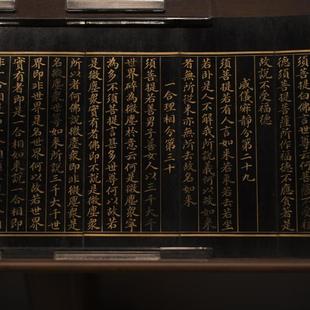 須菩提白佛言世尊云何菩薩不受福
德須菩提菩薩所作福德不應貪著是
故說不受福德
威儀寂靜分第二十九
須菩提若有人言如來若來若去若坐
若臥是人不解我所說義何以故如來
者無所從來亦無所去故名如來
一合理相分第三十
須菩提若善男子善女人以三千大千
世界碎為微塵於意云何是微塵衆寧
為多不須菩提言甚多世尊何以故若
是微塵衆實有者佛即不說是微塵衆
所以者何佛說微塵衆即非微塵衆是
名微塵衆世尊如來所說三千大千世
界即非世界是名世界何以故若世界
實有者即是一合相如來說一合相即
非一合相